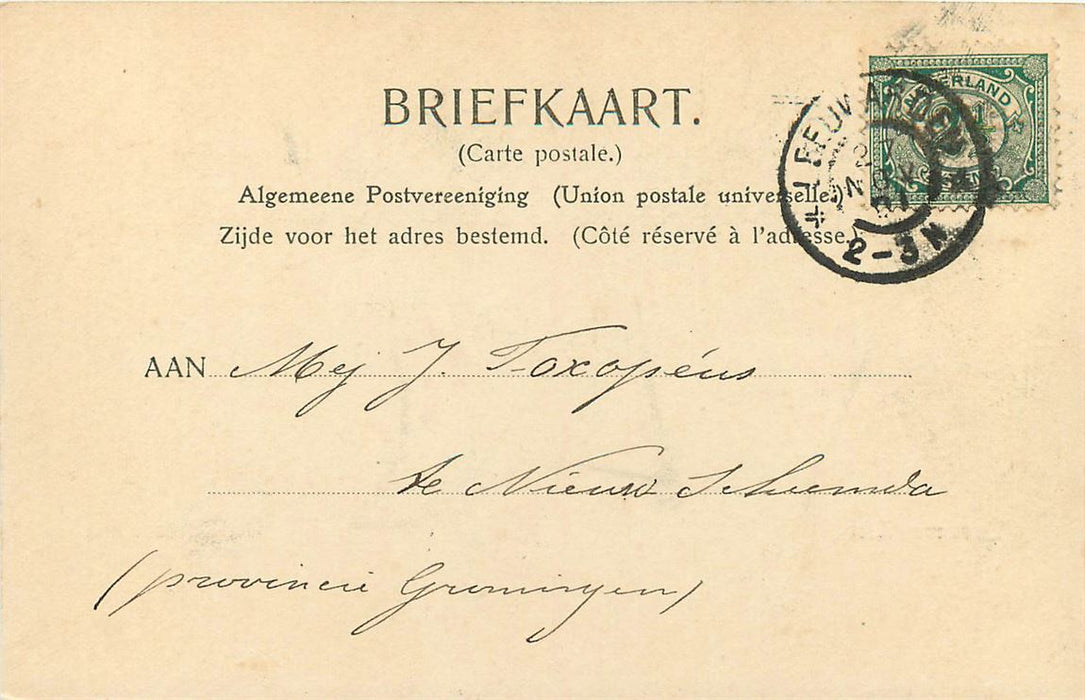 BRIEFKAART.
(Carte postale.)
Algemeene Postvereeniging (Union postale universelle.)
Zijde voor het adres bestemd. (Côté réservé à l'adresse.)
NEDERLAND
LEEUWARDEN
NOV
01
2-3N
AAN Mej J. Toxopéus
te Nieuw Scheemda
(provincie Groningen)